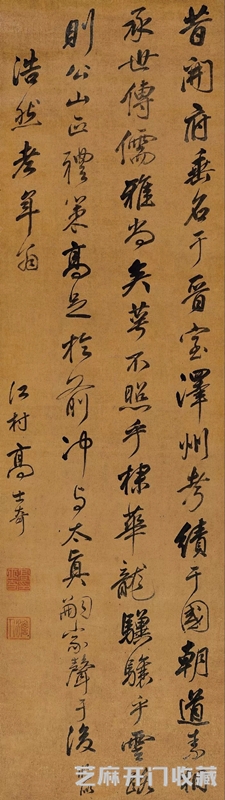 昔開府垂名于晉室澤州考績于國朝道素相
承世傳儒雅尚矣萼不照乎棣華龍驥驤乎雲路
則公山正禮策高足於前冲与太真嗣家聲于後
浩然老年翁
江村高士奇
芝麻开门收藏